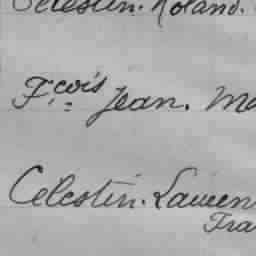 Celestin. Roland.
F.çois Jean. Ma
Celestin. Lauren
Fra